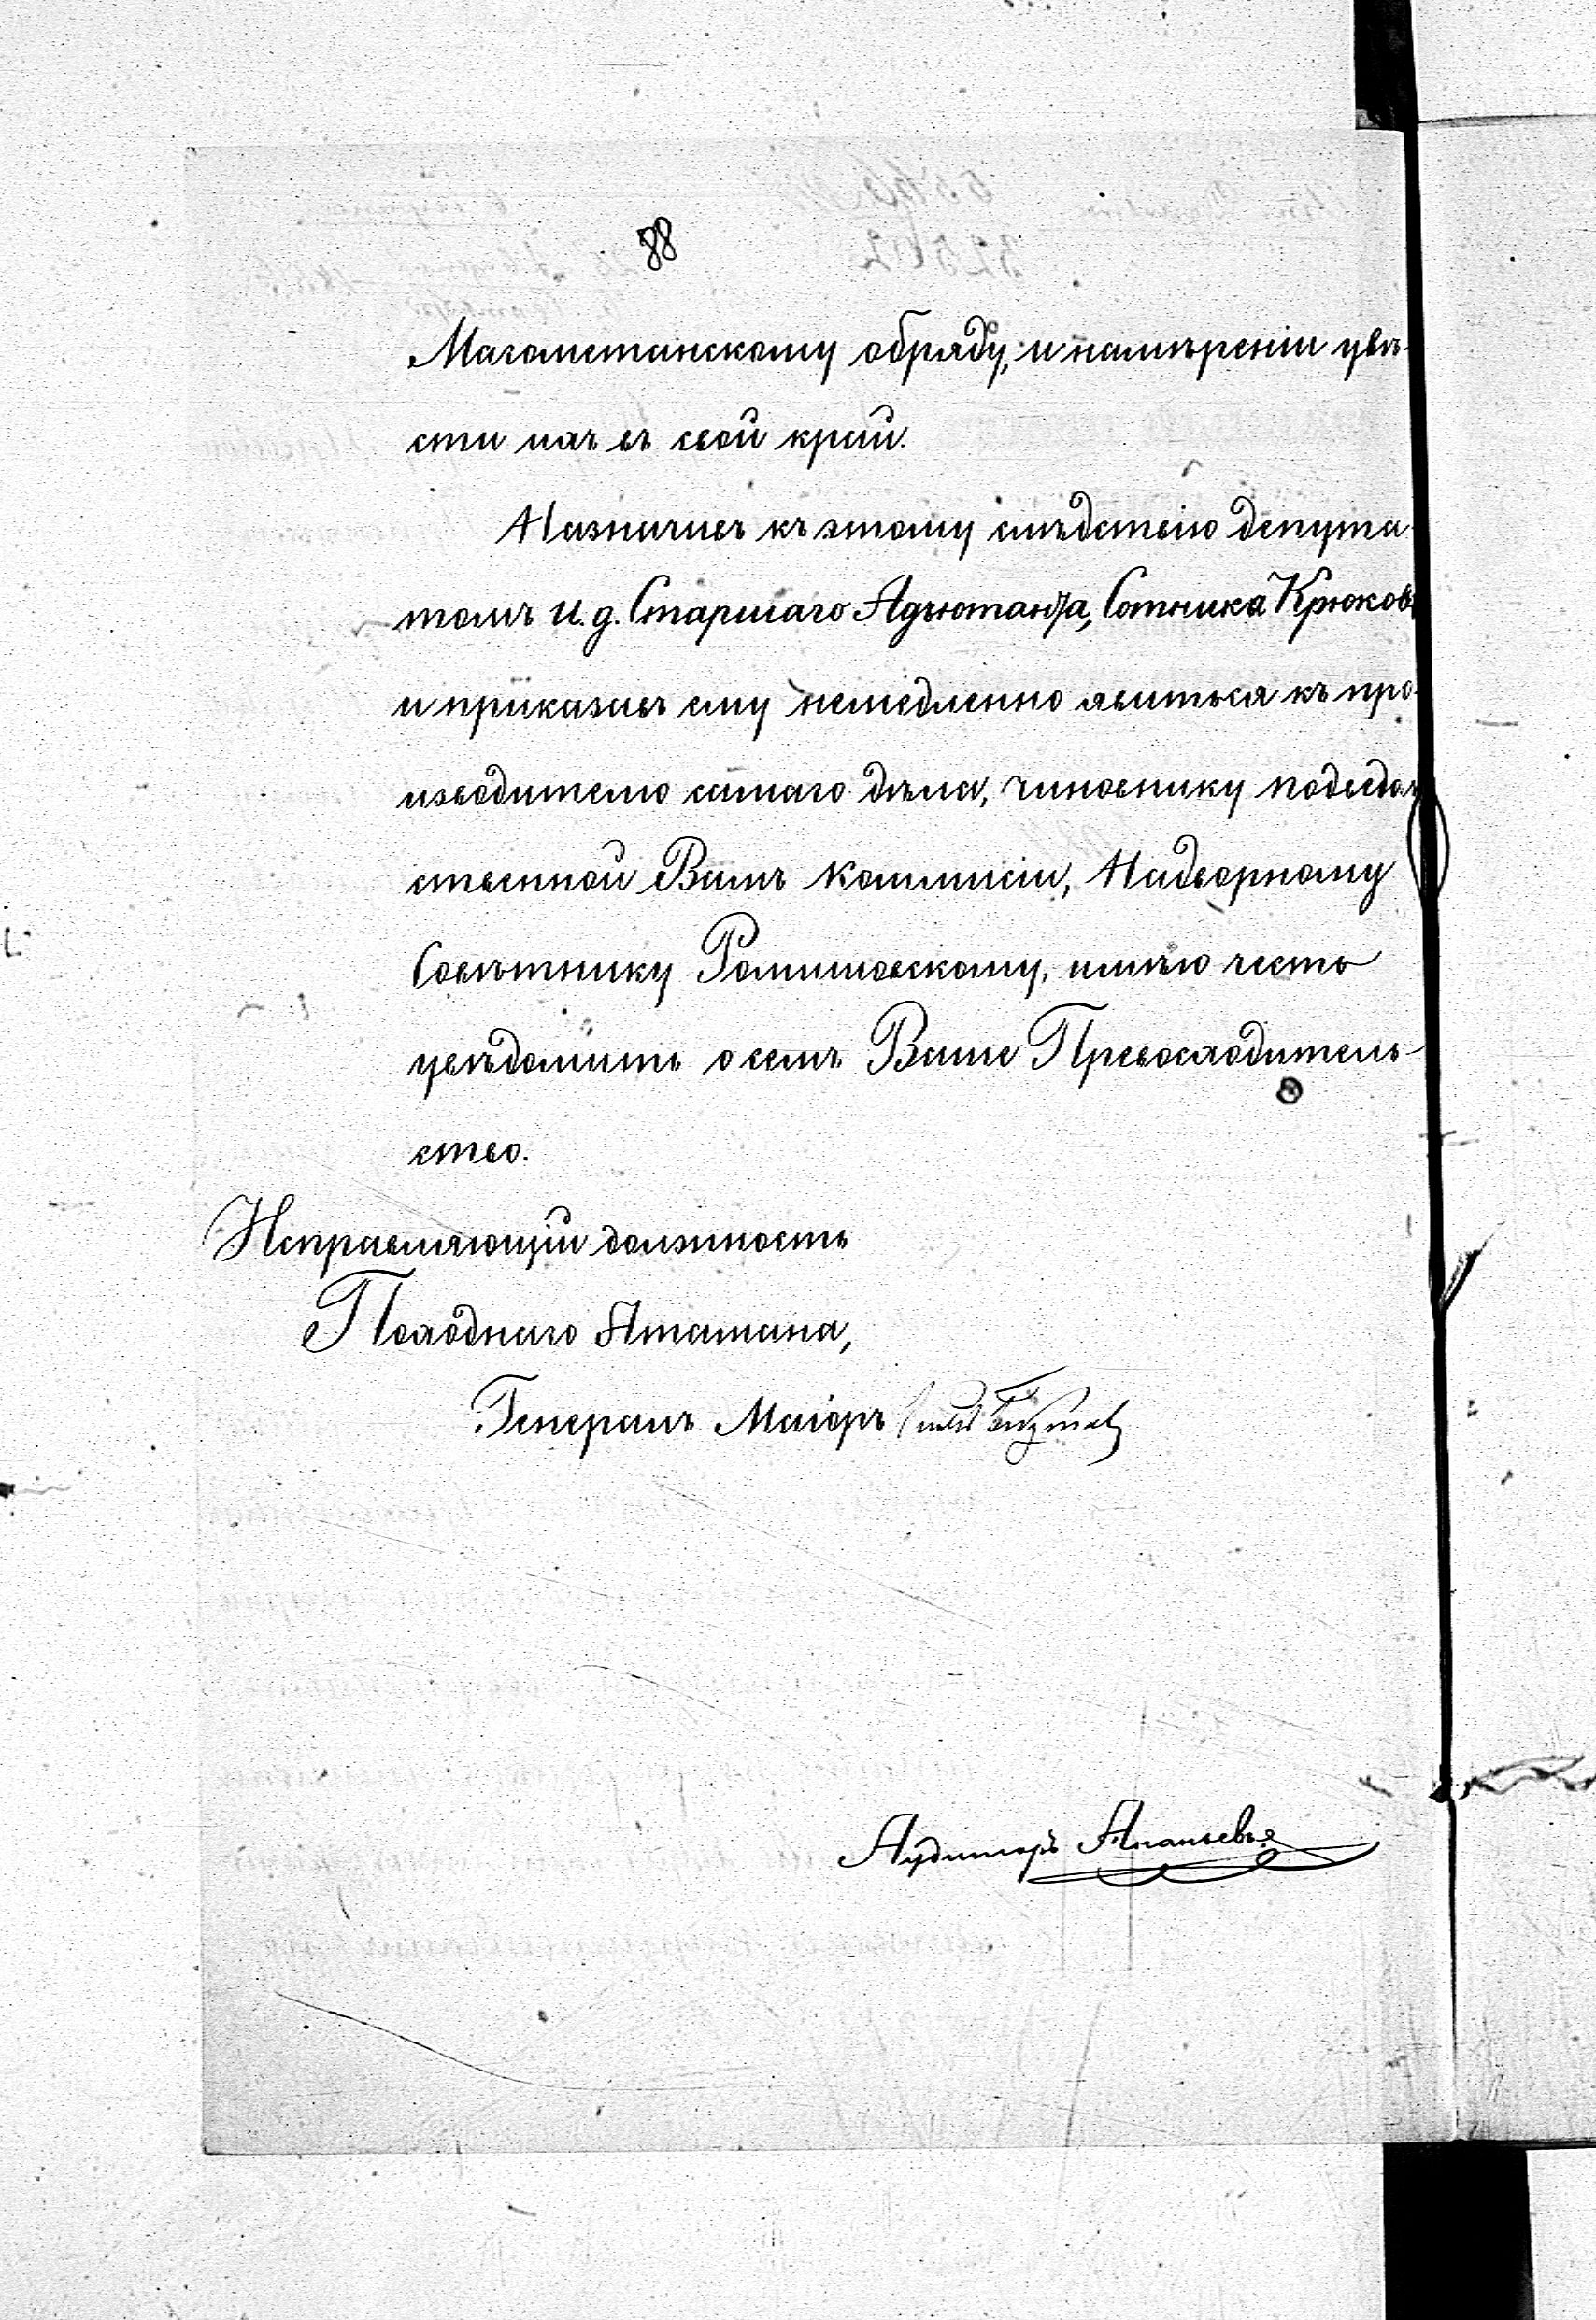 88
Магометанскому обряду, и намѣреніи увѣ-
сти ихъ въ свой край.
Назначивъ къ этому слѣдствію депута-
томъ и. д. Старшаго Адъютанта, Сотника Крюкова
и приказавъ ему немедленно явиться къ про-
изводителю самаго дѣла, чиновнику подвѣдом-
ственной Вамъ Коммисіи, Надворному
Совѣтнику Ромишовскому, имѣю честь
увѣдомить о семъ Ваше Превосходитель-
ство.
Исправляющій должность
Походнаго Атамана,
Генералъ Маіоръ
Аудиторъ Ананьевъ